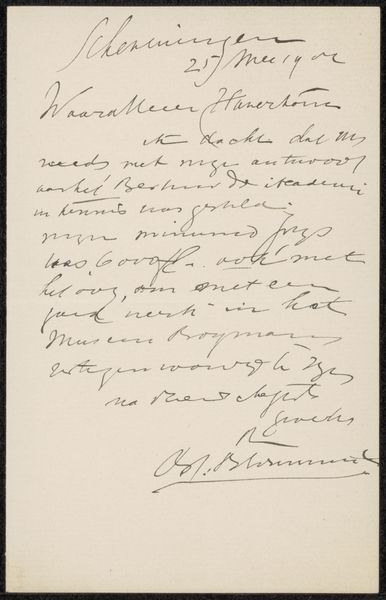 Scheveningen
25 Mei 19
Waarde Heer Haverkorn
ik dacht dat U
reeds met mijn antwoord
aan het Bestuur der Academie
in kennis was gesteld.
mijn minimum prijs
was 6000 fl. ook met
het oog, om met een
goed werk in het
Museum Boymans
vertegenwoordigd te zijn
na vriendel
groeten
B. J. Blommers